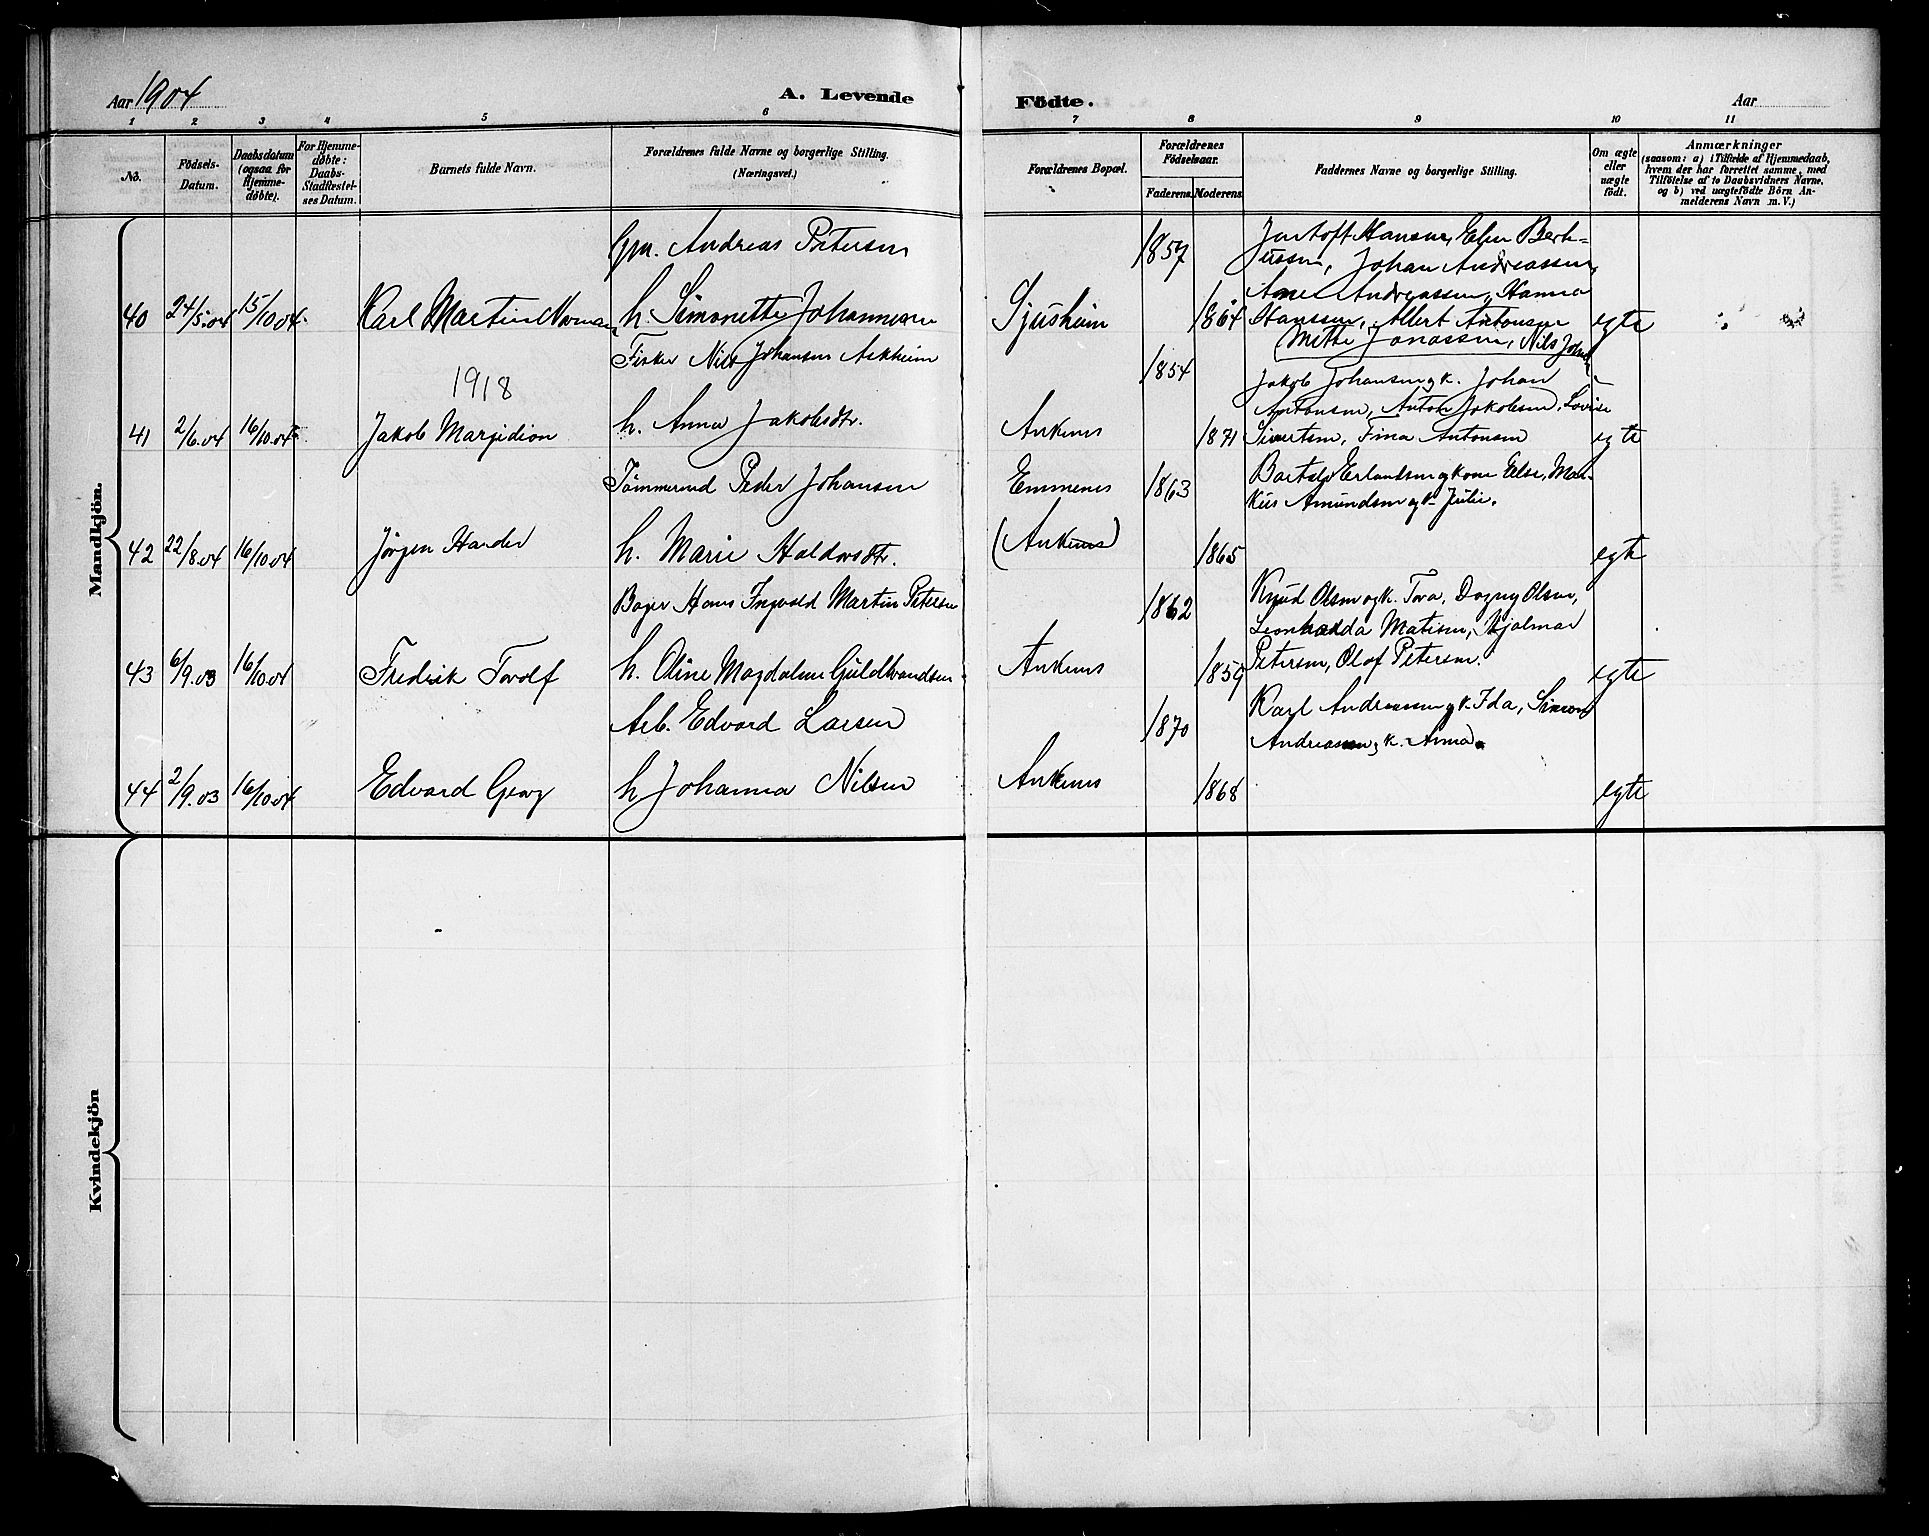 Aar 1904
A. Levende
Födte.
Aar
1 2 3 4 5 6 7 8 9 10 11
No.
Födsels-Datum.
Daabsdatum (ogsaa for Hjemme-døbte).
For Hjemme-døbte: Daabs-Stadfæstel-ses Datum.
Barnets fulde Navn.
Forældrenes fulde Navne og borgerlige Stilling.
(Næringsvei.)
Forældrenes Bopæl.
Forældrenes Födselsaar.
Faderens. Moderens.
Faddernes Navne og borgerlige Stilling.
Om ægte eller uægte födt.
Anmærkninger
(saasom: a) i Tilfælde af Hjemmedaab, hvem der har forrettet samme, med Tilföielse af to Daabsvidners Navne, og b) ved uægtefödte Börn An-melderens Navn m. V.)
Mandkjön.
Gm. Andreas Petersen 1857 Hansen, Elen Berh-
Johan Andreassen,
40 24/5.04 15/10.04. Karl Martin Norman h. Simonette Johannesen Sjusheim 1864 Andreassen, Hanna
Hanssen, Albert Antonsen egte
Mette Jonassen, Nils
Fisker Nils Johansen Ankheim 1854 Jakob Johansen og k. Johan
1918
41 2/6.04 16/10.04 Jakob Marjidion h. Anna Jakobsdtr. Ankenes 1871 Antonsen, Anton Jakobsen, Lovise
Sivertsen, Fina Antonsen egte
Tömmermd Peder Johansen Emmenes 1863 Erlandsen og kone Else, Mar-
kus Amundsen og k. Julie.
42 22/8.04 16/10.04 Jörgen Harder h. Marie Haldorsdtr. (Ankenes) 1865 egte
Bager Hans Ingvald Martin Petersen 1862 Knud Olsen og k. Tora, Dagny Olsen,
Leonharda Matisen, Hjalmar
43 6/9.03 16/10.04 Fredrik Torolf h. Oline Magdalene Guldbrandsen Ankenes 1859 Petersen, Olaf Petersen. egte
Arb. Edvard Larsen 1870 Karl Andreassen og k. Ida, Simon
Andreassen og k. Anna.
44 2/9.03 16/10.04 Edvard Georg h Johanna Nilsen Ankenes 1868 egte
Kvindekjön